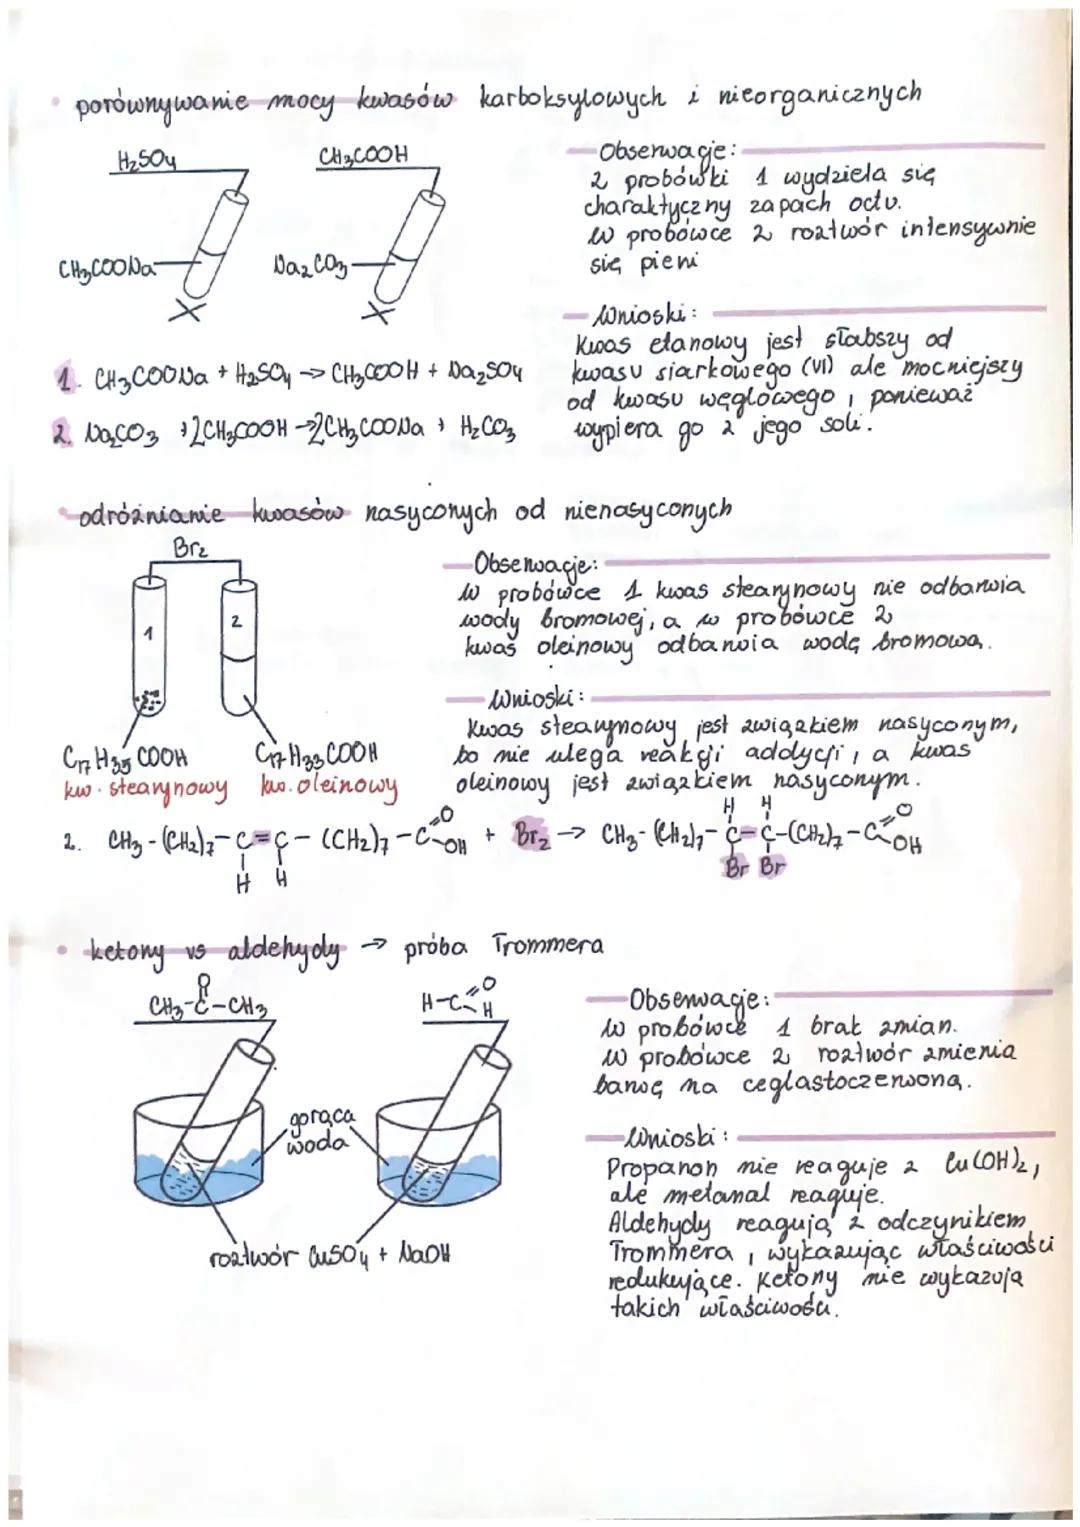 • porównywanie mocy kwasów karboksylowych i nieorganicznych
H₂SO₄
CH₃COOH
CH₃COONa
Na₂CO₃
Obserwacje:
z probówki 1 wydziela się
charaktyczny zapach octu.
W probówce 2 roztwór intensywnie
się pieni
Wnioski:
Kwas etanowy jest słabszy od
kwasu siarkowego (VI) ale mocniejszy
od kwasu węglowego, ponieważ
wypiera go z jego soli.
1. CH₃COONa + H₂SO₄ → CH₃COOH + Na₂SO₄
2. Na₂CO₃ + 2CH₃COOH → 2CH₃COONa + H₂CO₃
• odróżnianie kwasów nasyconych od nienasyconych
Br₂
1
2
C₁₇H₃₅COOH
kw. stearynowy
C₁₇H₃₃COOH
kw. oleinowy
Obserwacje:
W probówce 1 kwas stearynowy nie odbarwia
wody bromowej, a w probówce 2
kwas oleinowy odbarwia wodę bromową.
Wnioski:
Kwas stearynowy jest związkiem nasyconym,
bo nie ulega reakcji addycji, a kwas
oleinowy jest związkiem nasyconym.
2. CH₃-(CH₂)₇-C=C-(CH₂)₇-C=O OH + Br₂ → CH₃-(CH₂)₇-C-C-(CH₂)₇-C=O OH
H H
H H
Br Br
• ketony vs aldehydy → próba Trommera
O
CH₃-C-CH₃
H-C=O H
gorąca
woda
roztwór CuSO₄ + NaOH
Obserwacje:
W probówce 1 brak zmian.
W probówce 2 roztwór zmienia
barwę na ceglastoczerwoną.
Wnioski:
Propanon nie reaguje z Cu(OH)₂,
ale metanal reaguje.
Aldehydy reagują z odczynikiem
Trommera, wykazując właściwości
redukujące. Ketony nie wykazują
takich właściwości.